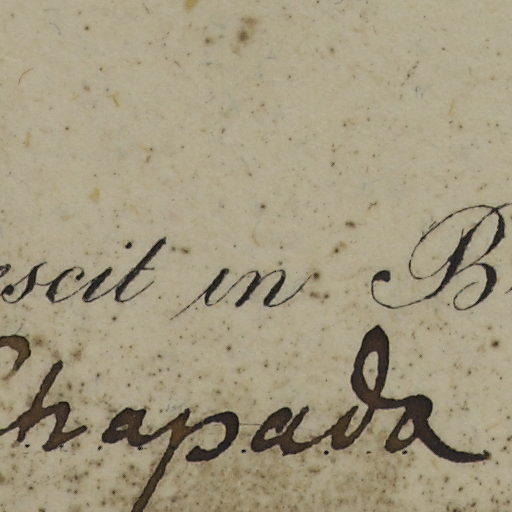 escit in B
Chapada